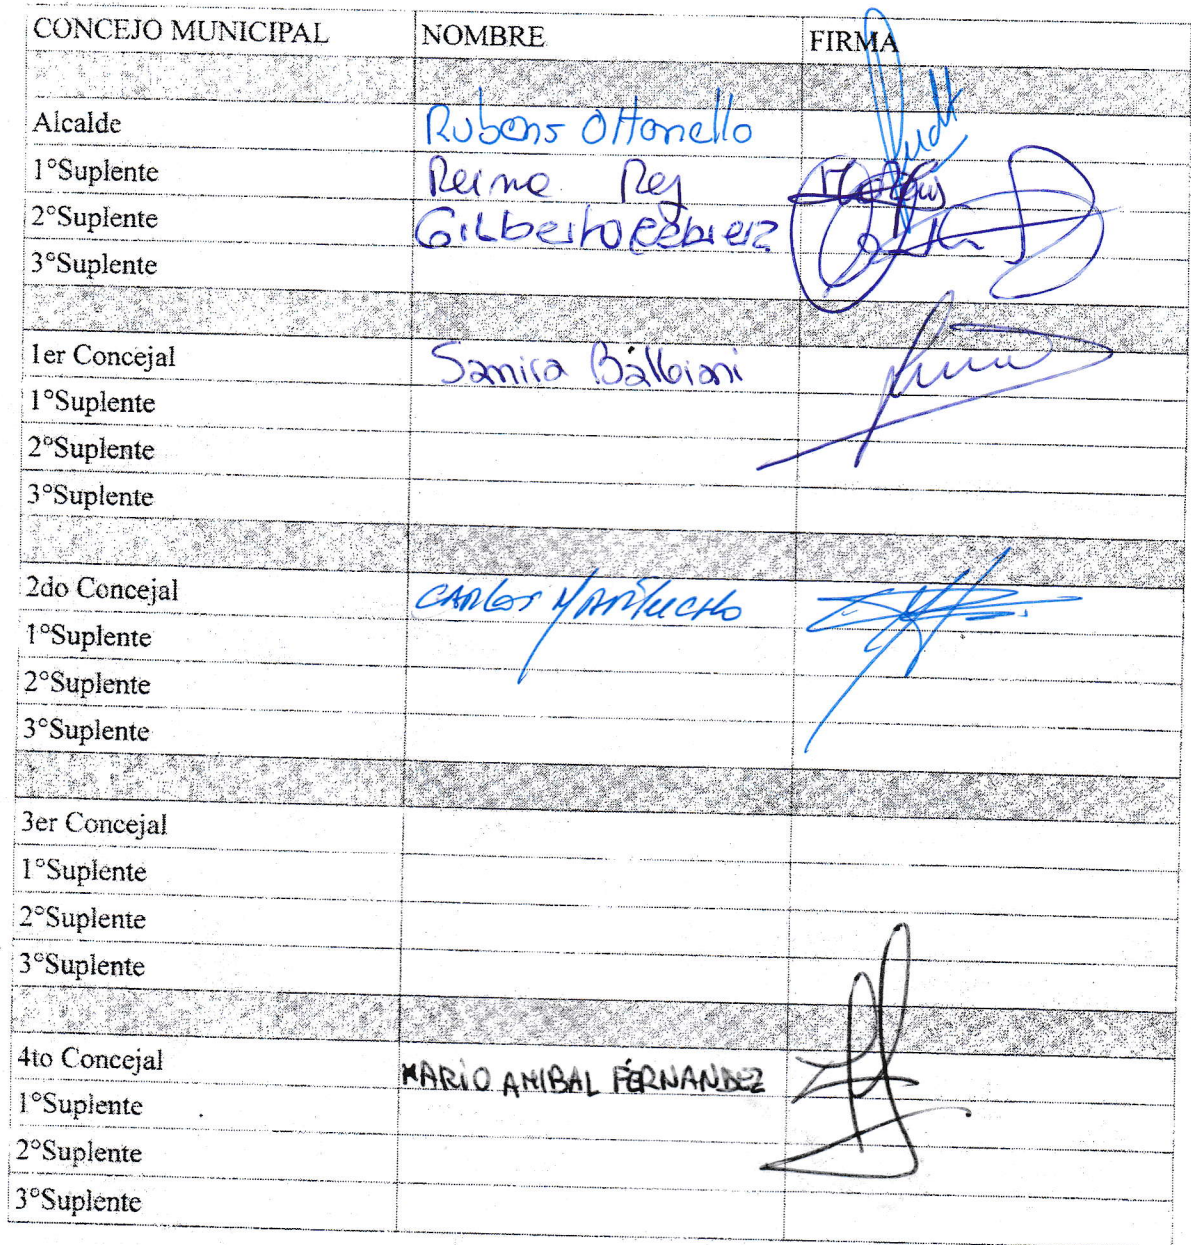 CONCEJO MUNICIPAL NOMBRE FIRMA
Alcalde Rubens Ottonello
1°Suplente Reina Rey
2°Suplente Gilberto
3°Suplente
1er Concejal Samira Balbiani
1°Suplente
2°Suplente
3°Suplente
2do Concejal CARLOS
1°Suplente
2°Suplente
3°Suplente
3er Concejal
1°Suplente
2°Suplente
3°Suplente
4to Concejal MARIO ANIBAL FERNANDEZ
1°Suplente
2°Suplente
3°Suplente